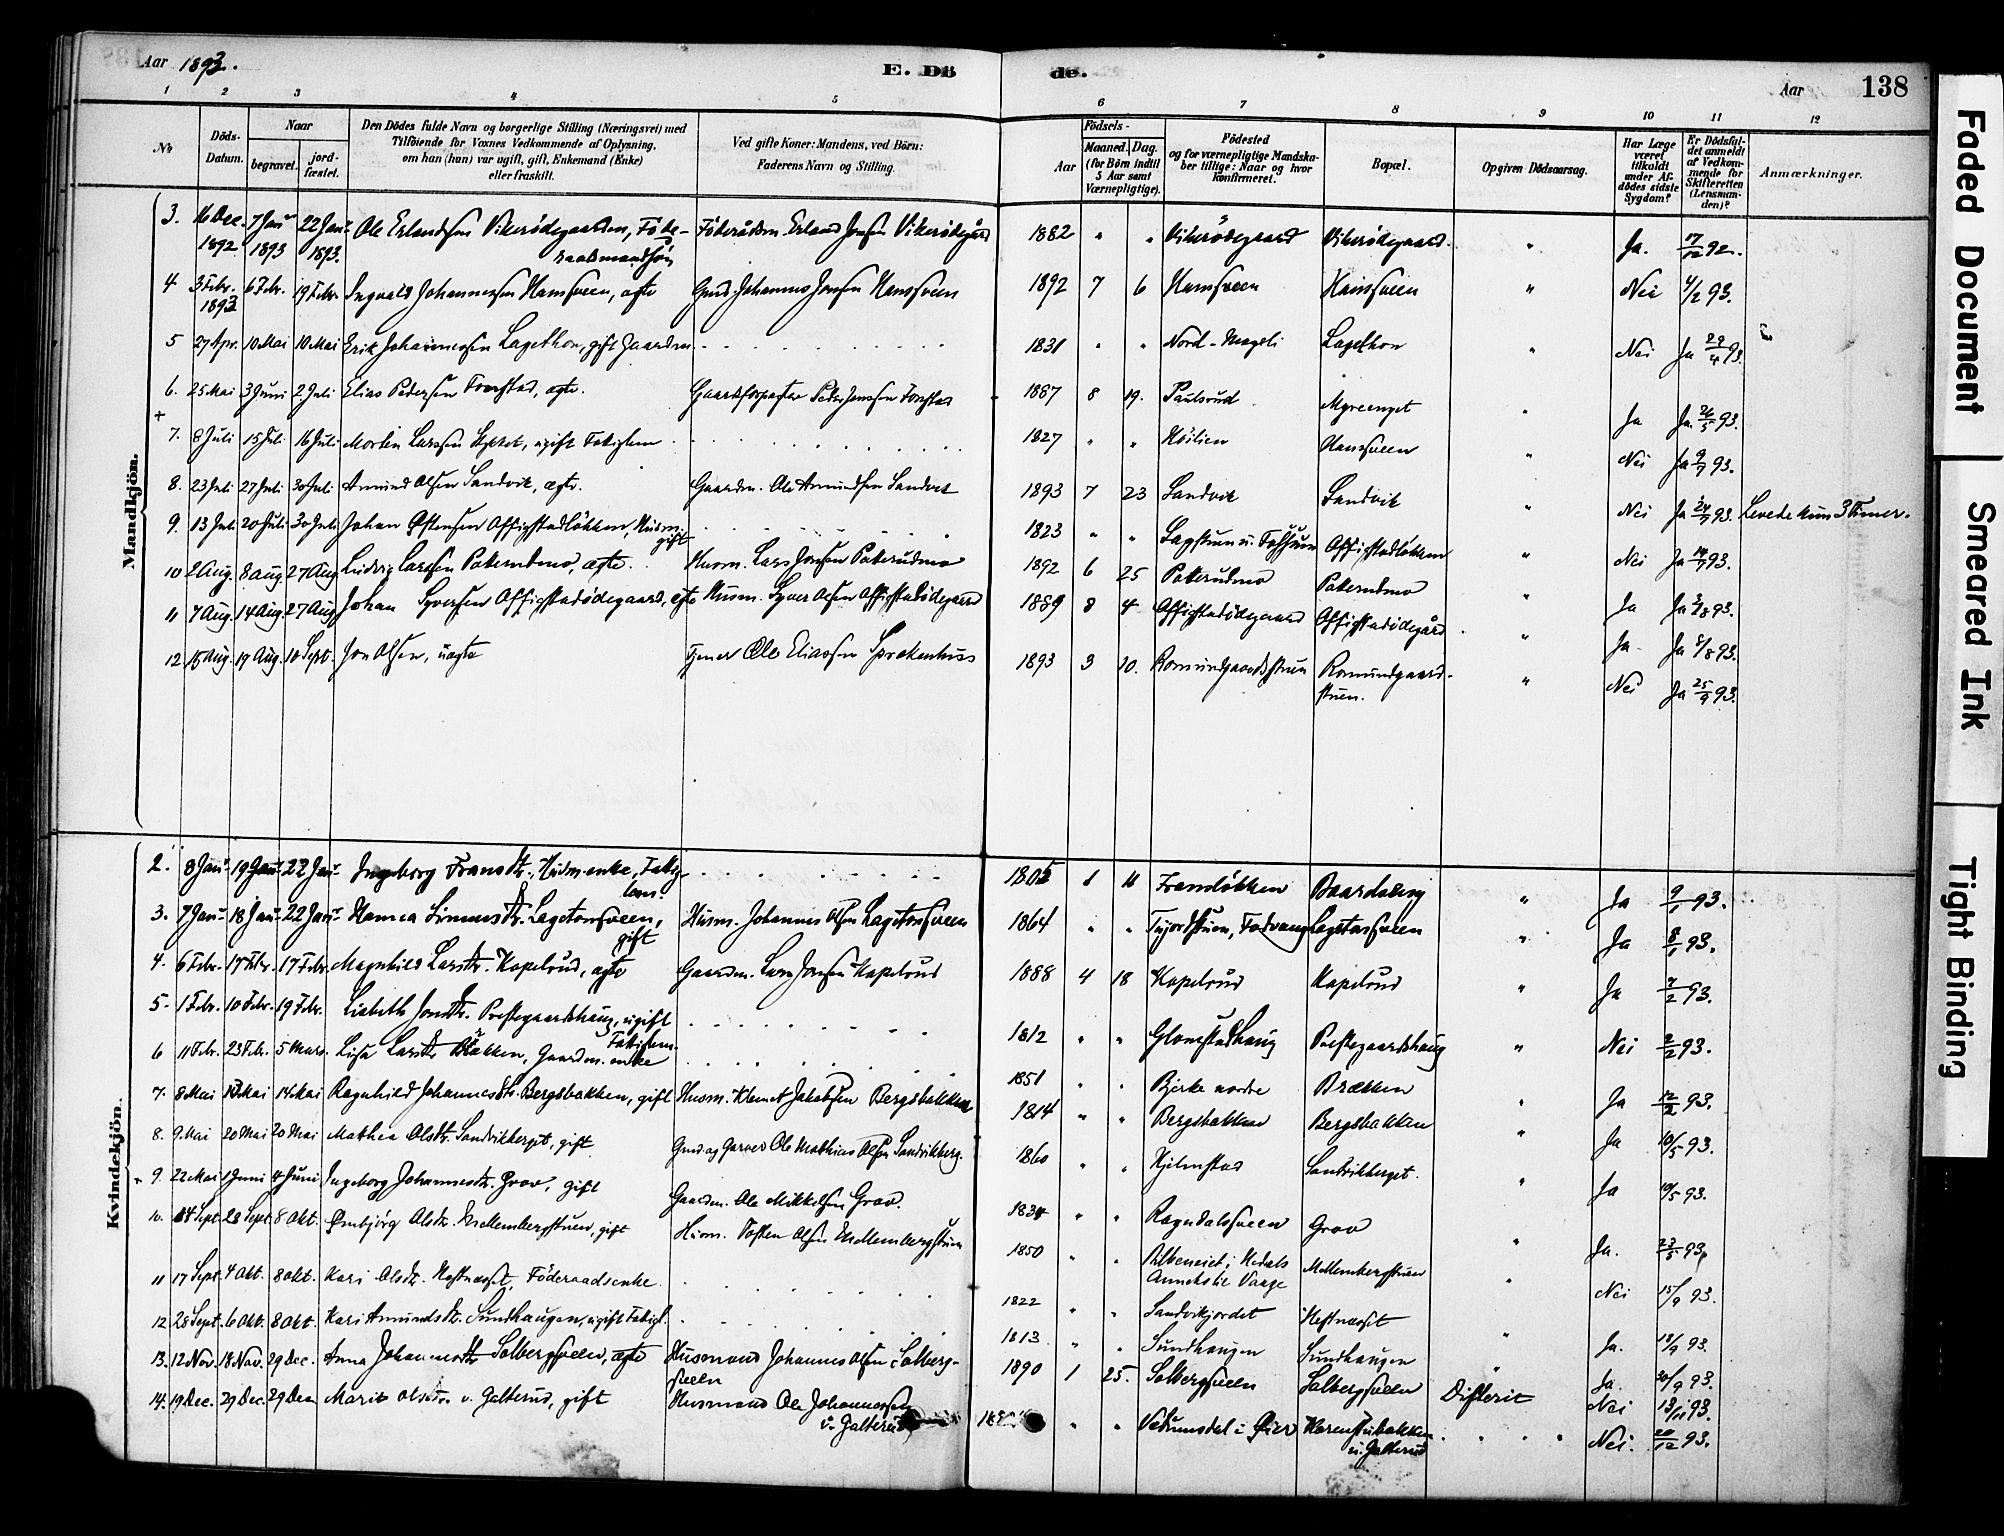 Aar 1893.
E. Dö
de.
Aar
138
1 2 3 4 5 6 7 8 9 10 11 12
No
Döds-Datum.
Naar
begravet.
jord-fæstet.
Den Dödes fulde Navn og borgerlige Stilling (Næringsvei) med
Tilföiende for Voxnes Vedkommende af Oplysning,
om han (hun) var ugift, gift, Enkemand (Enke)
eller fraskilt.
Ved gifte Koner: Mandens, ved Börn:
Faderens Navn og Stilling.
Födsels-
Aar
Maaned. Dag.
(for Börn indtil
5 Aar samt
Værnepligtige).
Födested
og for værnepligtige Mandska-
ber tillige: Naar og hvor
konfirmeret.
Bopæl.
Opgiven Dödsaarsag.
Har Læge
været
tilkaldt
under Af-
dödes sidste
Sygdom?
Er Dödsfal-
det anmeldt
af Vedkom-
mende for
Skifteretten
(Lensman-
den)?
Anmærkninger.
Mandkjön.
3. 16 Dec. 1892 7 Jan 1893 22 Jan 1893. Ole Erlandsen Vikerödegaarden, Föde-raadsmandssön Föderådsm. Erland Jonsen Vikerödegård 1882 " " Vikerödegaard Vikerödegaard. " Ja. 17/12 92.
4 3 Febr. 1893 6 Febr. 19 Febr. Ingvald Johannessen Hansveen, ægte Gmd. Johannes Jonsen Hansveen 1892 7 6 Hansveen Hansveen " Nei 4/2 93.
5 27 Apr. 10 Mai 10 Mai Erik Johannessen Lagethon, gift Gaardm 1831 " " Nord-Mageli Lagethon " Nei Ja 29/4 93.
6. 25 Mai 3 Juni 2 Juli Elias Pedersen Forrestad, ægte. Gaardsforpagter Peder Jenssen Forrestad 1887 8 19. Paulsrud Myreenget " Ja Ja 26/5 93.
+
7. 8 Juli 15 Juli 16 Juli Morten Larssen ugift Fattiglem 1827 " " Höilien Hansveen " Nei Ja 9/7 93.
8. 23 Juli 27 Juli 30 Juli Amund Olsen Sandvik, ægte. Gaardm. Ole Amundsen Sandvik 1893 7 23 Sandvik Sandvik " Nei Ja 24/7 93. Levede kun 3 Timer.
9. 13 Juli 20 Juli 30 Juli Johan Østensen Offigstadlökken, Husm. gift 1823 " " Offigstadlökken " Nei Ja 14/7 93.
10 2 Aug. 8 Aug 27 Aug. Ludvig Larssen Pokerudmo, ægte. Husm. Lars Jonsen Pokerudmo 1892 6 25 Pokerudmo Pokerudmo " Ja Ja 3/8 93.
11 7 Aug. 14 Aug. 27 Aug Johan Syversen Offigstadödegaard, ægte Husm. Syver Olsen Offigstadödegaard 1889 8 4 Offigstadödegaard Offigstadödegård " Ja Ja 8/8 93.
12 15 Aug. 19 Aug. 10 Sept. Jon Olsen, uægte Tjener Ole Eliassen Sprakenhus 1893 3 10. Romundgaardsstuen Romundgaard-stuen. " Nei Ja 25/9 93.
Kvindekjön.
2. 8 Jan 19 Jan 22 Jan Ingeborg Fransdtr. Husm.enke, Fattig-lem. 1805 1 11 Framlökken Baardseng " Ja 9/1 93.
3. 7 Jan 18 Jan 22 Jan Hanna Simensdtr. Lagetonsveen, gift Husm. Johannes Olsen Lagetonsveen 1864 " " Fodvang Lagetonsveen " Ja 8/1 93.
4. 6 Febr. 17 Febr. 17 Febr. Magnhild Larsdtr. Kapelrud, ægte Gaardm. Lars Jonsen Kapelrud 1888 4 18 Kapelrud Kapelrud " Ja 7/2 93.
5. 1 Febr. 10 Febr. 19 Febr. Lisbeth Jonsdtr. Prestegaardshaug, ugift Fattiglem. 1812 " " Glomstadhaug Prestegaardshaug " Nei 2/2 93.
6 11 Febr. 23 Febr. 5 Mars Lisa Larsdtr Bräkken, Gaardm. enke 1851 " " Bjerke nordre Brækken " Ja 12/2 93.
7. 8 Mai 13 Mai 14 Mai Ragnhild Johannesdtr. Bergsbakken, gift Husm. Klemet Jakobsen Bergsbakken 1814 " " Bergsbakken Bergsbakken " Ja 10/5 93.
8. 9. Mai 20 Mai 20 Mai Mathea Olsdtr. Sandvikberget, gift Gmd og Garver Ole Mathias Olsen Sandvikberg. 1860 " " Hjelmstad Sandvikberget. " Ja 10/5 93.
9. 22 Mai 1 Juni 4 Juni Ingeborg Johannesdtr. Grav, gift Gaardm. Ole Mikkelsen Grav. 1834 " " Ragndalsveen Grav " Ja. 23/5 93.
10. 14 Sept. 28 Sept. 8 Okt. Ømbjörg Olsdtr. Mellembergstuen, gift Husm. Tosten Olsen Mellembergstuen 1850 " " i Hedals Annekstil Vaage Mellembergstuen " Nei 15/9 93.
11 17 Sept. 4 Okt. 8 Okt. Kari Olsdtr. Næstnæset, Föderaadsenke. 1822 " " Sandvikjordet Næstnæset " Ja. 18/9 93.
12 28 Sept. 6 Okt. 8 Okt. Kari Amundsdtr. Sundhaugen, ugift Fattigl. 1813 " " Sundhaugen Sundhaugen " Ja. 30/9 93.
13. 12 Nov. 18 Nov. 29 Dec. Anna Johannesdtr Solbergsveen, ægte Husmand Johannes Olsen Solberg-sveen 1890 1 25. Solbergsveen Solbergsveen Difterit Nei 13/11 93.
14. 19 Dec. 29 Dec. 29 Dec Marit Olsdtr v. Galterud, gift Husmand Ole Johannessen v. Galterud " " i Øier u. Galterud Nei. 20/12 93.
Faded Document
Smeared Ink
Tight Binding